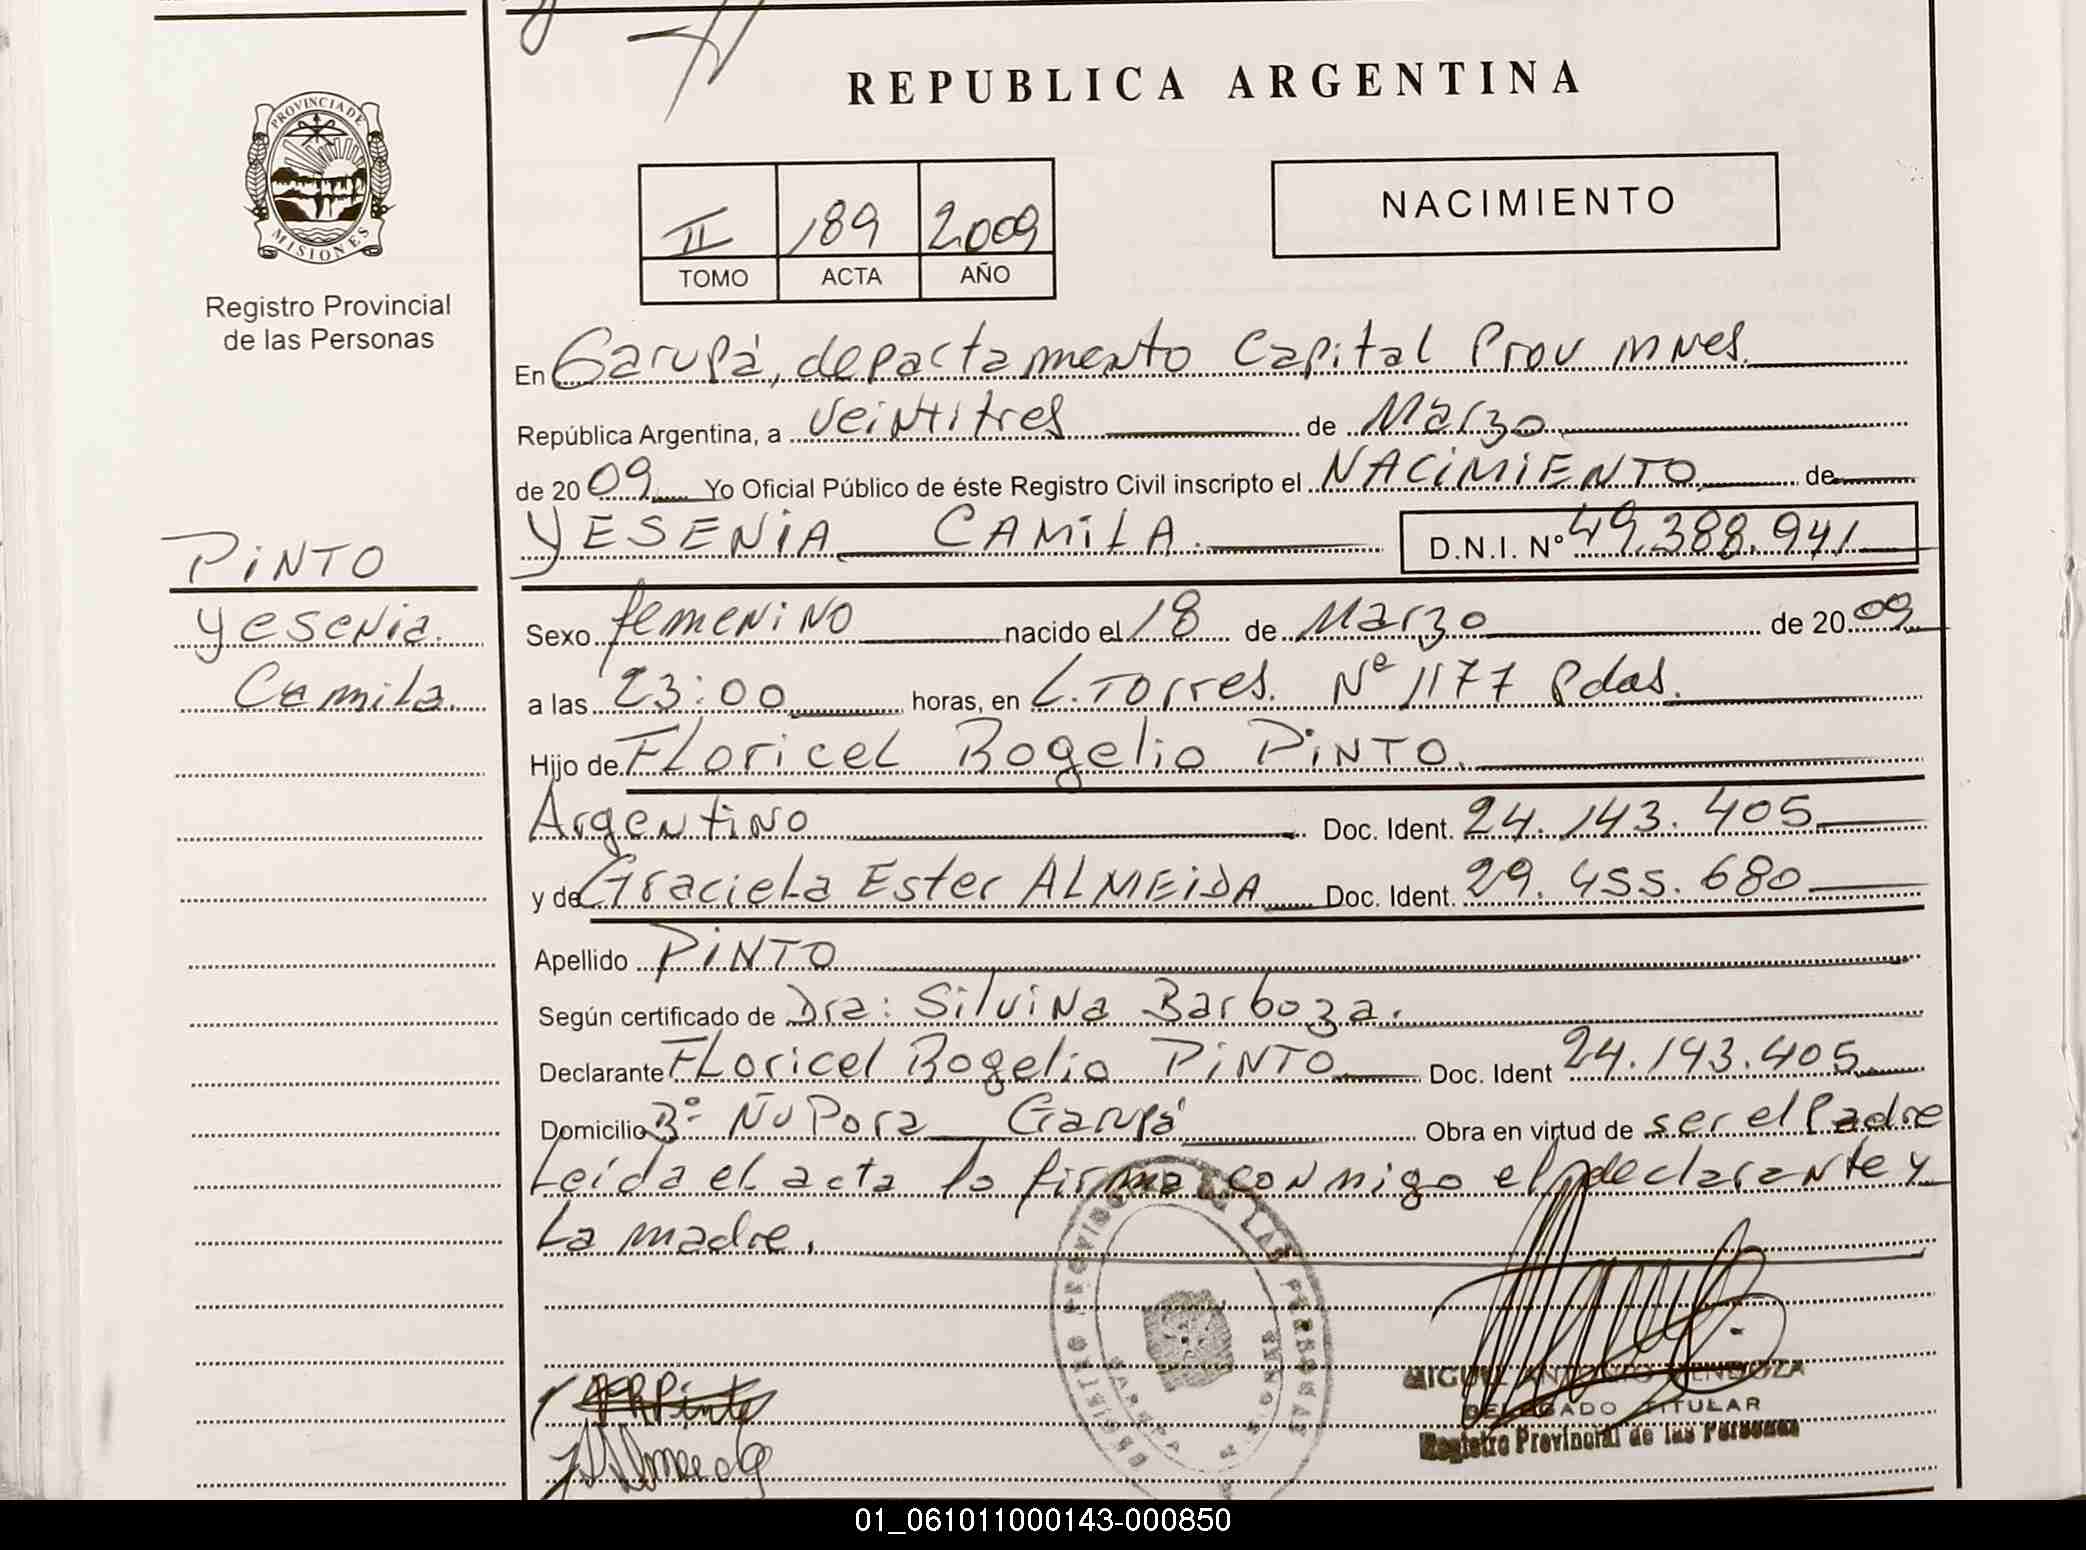 REPUBLICA ARGENTINA
PROVINCIA DE
MISIONES
Registro Provincial
de las Personas
II 189 2009
TOMO ACTA AÑO
NACIMIENTO
En Garupá, departamento Capital Prov mnes.
República Argentina, a veintitres de Marzo
de 2009 Yo Oficial Público de éste Registro Civil inscripto el NACIMIENTO de
YESENIA CAMILA. D.N.I. Nº 49.388.941
PINTO
Yesenia
Camila.
Sexo femenino nacido el 18 de Marzo de 2009
a las 23:00 horas, en L. Torres. Nº 1177 Pdas.
Hijo de Floricel Rogelio PINTO.
Argentino Doc. Ident. 24.143.405
y de Graciela Ester ALMEIDA Doc. Ident. 29.455.680
Apellido PINTO
Según certificado de Dra: Silvina Barboza.
Declarante Floricel Rogelio PINTO Doc. Ident 24.143.405
Domicilio Bº Ñu Pora Garupá Obra en virtud de ser el Padre
Leída el acta la firma conmigo el declarante y
La madre.
REGISTRO PROVINCIAL DE LAS PERSONAS
MIGUEL ANTONIO MENDOZA
DELEGADO TITULAR
Registro Provincial de las Personas
01_061011000143-000850